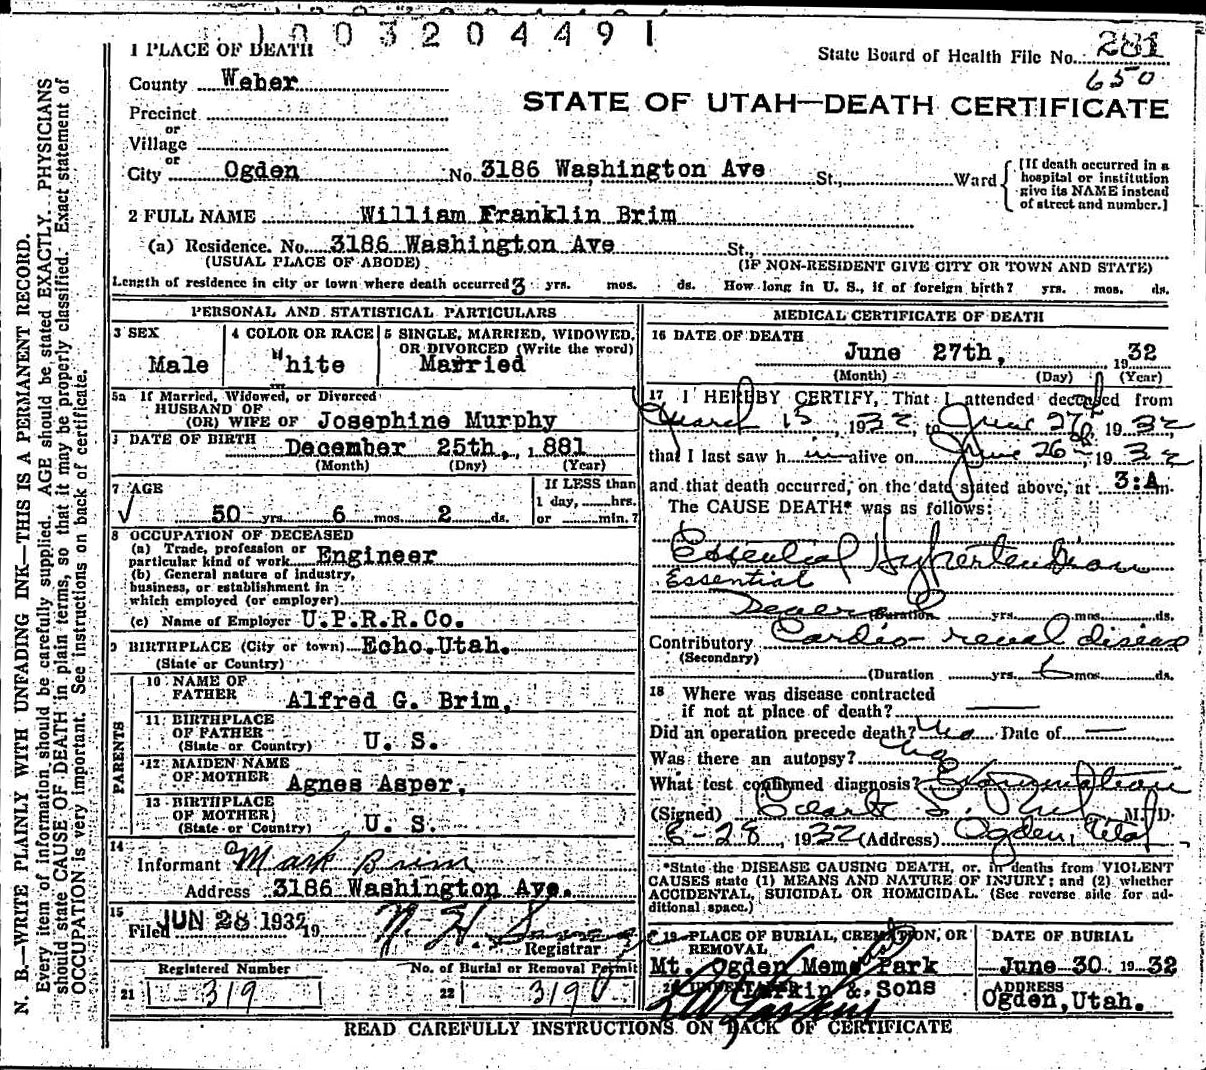 1003204491
1 PLACE OF DEATH
State Board of Health File No. 281
650
County Weber
STATE OF UTAH—DEATH CERTIFICATE
Precinct
or
Village
or
City Ogden No. 3186 Washington Ave St., Ward
[If death occurred in a hospital or institution give its NAME instead of street and number.]
2 FULL NAME William Franklin Brim
(a) Residence. No. 3186 Washington Ave St.,
(USUAL PLACE OF ABODE) (IF NON-RESIDENT GIVE CITY OR TOWN AND STATE)
Length of residence in city or town where death occurred 3 yrs. mos. ds. How long in U. S., if of foreign birth? yrs. mos. ds.
PERSONAL AND STATISTICAL PARTICULARS
3 SEX
Male
4 COLOR OR RACE
White
5 SINGLE, MARRIED, WIDOWED, OR DIVORCED (Write the word)
Married
5a If Married, Widowed, or Divorced
HUSBAND OF
(OR) WIFE OF Josephine Murphy
DATE OF BIRTH December 25th, 1881
(Month) (Day) (Year)
7 AGE
50 yrs. 6 mos. 2 ds.
If LESS than
1 day, hrs.
or min.?
8 OCCUPATION OF DECEASED
(a) Trade, profession or
particular kind of work Engineer
(b) General nature of industry,
business, or establishment in
which employed (or employer)
(c) Name of Employer U.P.R.R.Co.
9 BIRTHPLACE (City or town) Echo.Utah.
(State or Country)
PARENTS
10 NAME OF
FATHER Alfred G. Brim,
11 BIRTHPLACE
OF FATHER
(State or Country) U. S.
12 MAIDEN NAME
OF MOTHER Agnes Asper,
13 BIRTHPLACE
OF MOTHER)
(State or Country) U. S.
14
Informant Mark Brim
Address 3186 Washington Ave.
15
Filed JUN 28 1932 19
Registrar
Registered Number
21 319
No. of Burial or Removal Permit
22 319
MEDICAL CERTIFICATE OF DEATH
16 DATE OF DEATH
June 27th, 1932
(Month) (Day) (Year)
17 I HEREBY CERTIFY, That I attended deceased from
March 15, 1932, to June 27, 1932
that I last saw him alive on June 26, 1932
and that death occurred, on the date stated above, at 3:A m.
The CAUSE DEATH* was as follows:
Essential Hypertension
Essential
Several (Duration yrs. mos. ds.
Contributory Cardio-renal disease
(Secondary)
(Duration yrs. 6 mos. ds.
18 Where was disease contracted
if not at place of death? —
Did an operation precede death? No Date of —
Was there an autopsy? No
What test confirmed diagnosis? Examination
(Signed) M. D.
6-28, 1932 (Address) Ogden, Utah
*State the DISEASE CAUSING DEATH, or, in deaths from VIOLENT
CAUSES state (1) MEANS AND NATURE OF INJURY; and (2) whether
ACCIDENTAL, SUICIDAL OR HOMICIDAL. (See reverse side for ad-
ditional space.)
19 PLACE OF BURIAL, CREMATION, OR
REMOVAL
Mt. Ogden Mem. Park
DATE OF BURIAL
June 30 1932
20 UNDERTAKER
Larkin & Sons
ADDRESS
Ogden, Utah.
READ CAREFULLY INSTRUCTIONS ON BACK OF CERTIFICATE
N. B.—WRITE PLAINLY WITH UNFADING INK—THIS IS A PERMANENT RECORD.
Every item of information should be carefully supplied. AGE should be stated EXACTLY. PHYSICIANS
should state CAUSE OF DEATH in plain terms, so that it may be properly classified. Exact statement of
OCCUPATION is very important. See instructions on back of certificate.